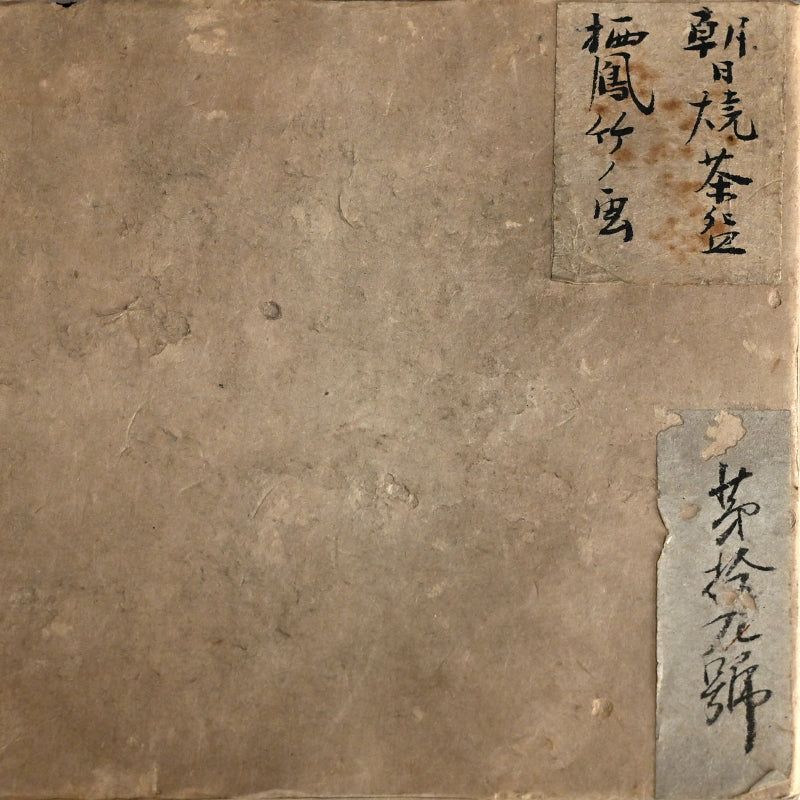 朝日焼茶盌
栖鳳竹ノ画
第拾九號